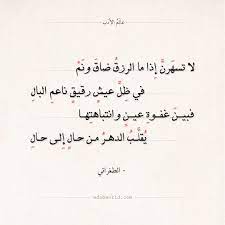 عالم الأدب
لا تسهرنَّ إذا ما الرزقُ ضاقَ ونَمْ
في ظلِّ عيشٍ رقيقٍ ناعمِ البالِ
فبينَ غفوةِ عينٍ وانتباهتِها
يُقلِّبُ الدهرُ من حالٍ إلى حالِ
- الطغرائي
adabworld.com